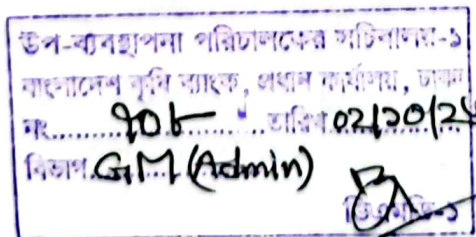 উপ-ব্যবস্থাপনা পরিচালকের সচিবালয়-১
বাংলাদেশ কৃষি ব্যাংক, প্রধান কার্যালয়, ঢাকা
নং.....৭০৮.....তারিখ
বিভাগ GM (Admin)
ডিএমডি-১